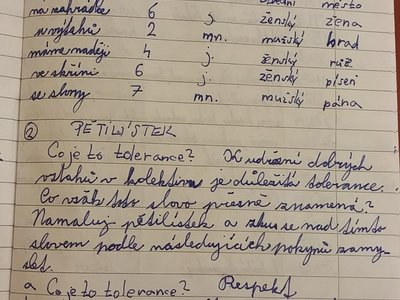 střední město
na zahrádce 6 j. ženský žena
u výtahů 2 mn. mužský hrad
máme naději 4 j. ženský růž
ve skříni 6 j. ženský píseň
se slony 7 mn. mužský pána
② PĚTILÍSTEK
Co je to tolerance? K udržení dobrých
vztahů v kolektivu je důležitá tolerance.
Co však toto slovo přesně znamená?
Namaluj pětilístek a zkus se nad tímto
slovem podle následujících pokynů zamy-
slet.
a Co je to tolerance? Respekt